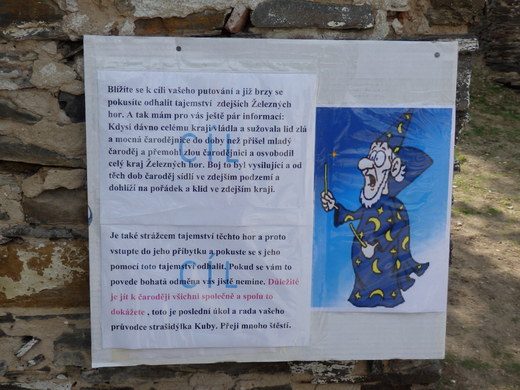 Blížíte se k cíli vašeho putování a již brzy se
pokusíte odhalit tajemství zdejších Železných
hor. A tak mám pro vás ještě pár informací:
Kdysi dávno celému kraji vládla a sužovala lid zlá
a mocná čarodějnice do doby než přišel mladý
čaroděj a přemohl zlou čarodějnici a osvobodil
celý kraj Železných hor. Boj to byl vysilující a od
těch dob čaroděj sídlí ve zdejším podzemí a
dohlíží na pořádek a klid ve zdejším kraji.
CÍL
Je také strážcem tajemství těchto hor a proto
vstupte do jeho příbytku a pokuste se s jeho
pomocí toto tajemství odhalit. Pokud se vám to
povede bohatá odměna vás jistě nemine. Důležité
je jít k čaroději všichni společně a spolu to
dokážete , toto je poslední úkol a rada vašeho
průvodce strašidýlka Kuby. Přeji mnoho štěstí.
CÍL